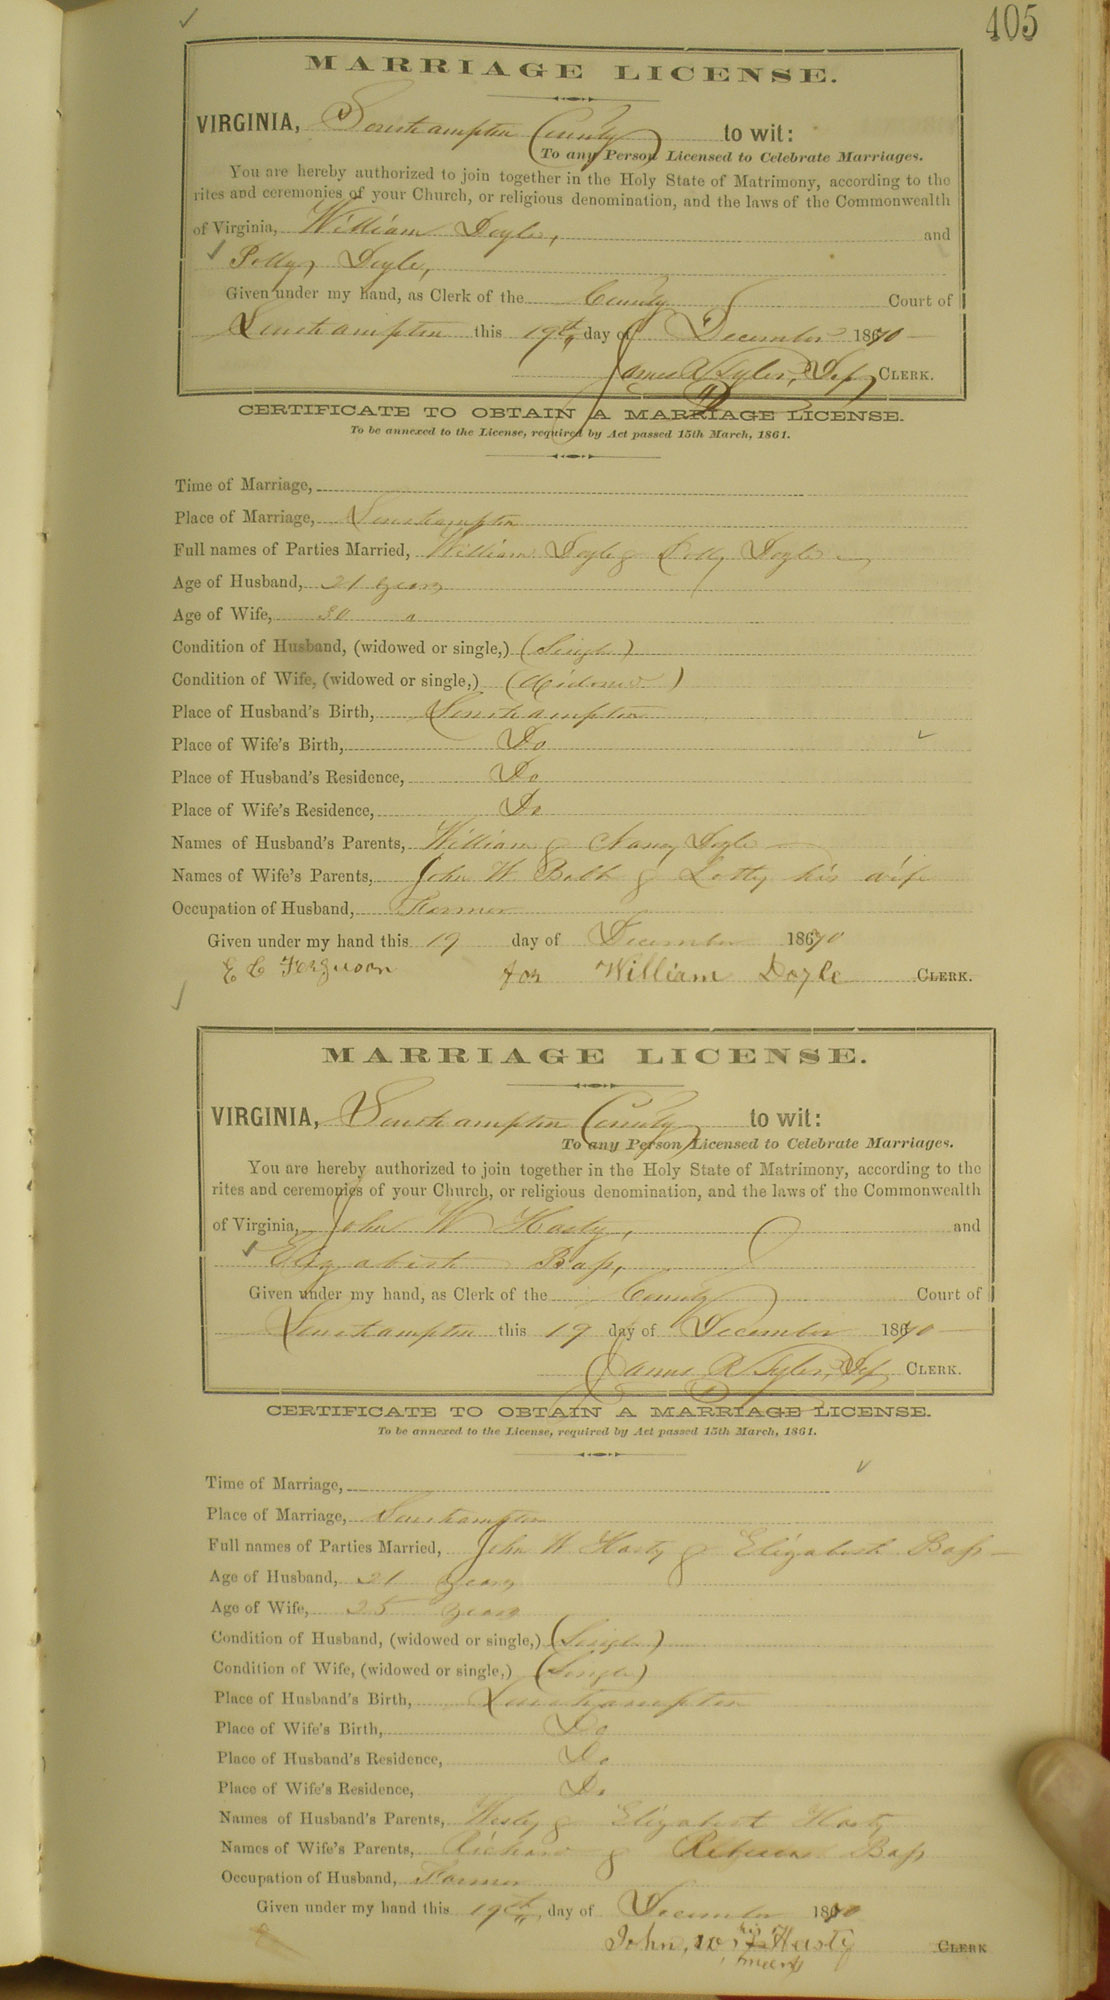 405
MARRIAGE LICENSE.
VIRGINIA, Southampton County to wit:
To any Person Licensed to Celebrate Marriages.
You are hereby authorized to join together in the Holy State of Matrimony, according to the
rites and ceremonies of your Church, or religious denomination, and the laws of the Commonwealth
of Virginia, William Doyle, and
Polly Doyle,
Given under my hand, as Clerk of the County Court of
Southampton this 19th day of December 1870
James R Tyler, Dep CLERK.
CERTIFICATE TO OBTAIN A MARRIAGE LICENSE.
To be annexed to the License, required by Act passed 15th March, 1861.
Time of Marriage,
Place of Marriage, Southampton
Full names of Parties Married, William Doyle & Polly Doyle
Age of Husband, 21 years
Age of Wife, 30 "
Condition of Husband, (widowed or single,) (Single)
Condition of Wife, (widowed or single,) (Widow)
Place of Husband's Birth, Southampton
Place of Wife's Birth, Do
Place of Husband's Residence, Do
Place of Wife's Residence, Do
Names of Husband's Parents, William & Nancy Doyle
Names of Wife's Parents, John W. Babb & Lotty his wife
Occupation of Husband, Farmer
Given under my hand this 19 day of December 1870
E C Ferguson for William Doyle CLERK.
MARRIAGE LICENSE.
VIRGINIA, Southampton County to wit:
To any Person Licensed to Celebrate Marriages.
You are hereby authorized to join together in the Holy State of Matrimony, according to the
rites and ceremonies of your Church, or religious denomination, and the laws of the Commonwealth
of Virginia, John W Hasty, and
Elizabeth Bass,
Given under my hand, as Clerk of the County Court of
Southampton this 19 day of December 1870
James R Tyler, Dep CLERK.
CERTIFICATE TO OBTAIN A MARRIAGE LICENSE.
To be annexed to the License, required by Act passed 15th March, 1861.
Time of Marriage,
Place of Marriage, Southampton
Full names of Parties Married, John W Hasty & Elizabeth Bass
Age of Husband, 21 years
Age of Wife, 25 years
Condition of Husband, (widowed or single,) (Single)
Condition of Wife, (widowed or single,) (Single)
Place of Husband's Birth, Southampton
Place of Wife's Birth, Do
Place of Husband's Residence, Do
Place of Wife's Residence, Do
Names of Husband's Parents, Wesley & Elizabeth Hasty
Names of Wife's Parents, Richard & Rebecca Bass
Occupation of Husband, Farmer
Given under my hand this 19th day of December 1870
his
John, W Hasty CLERK